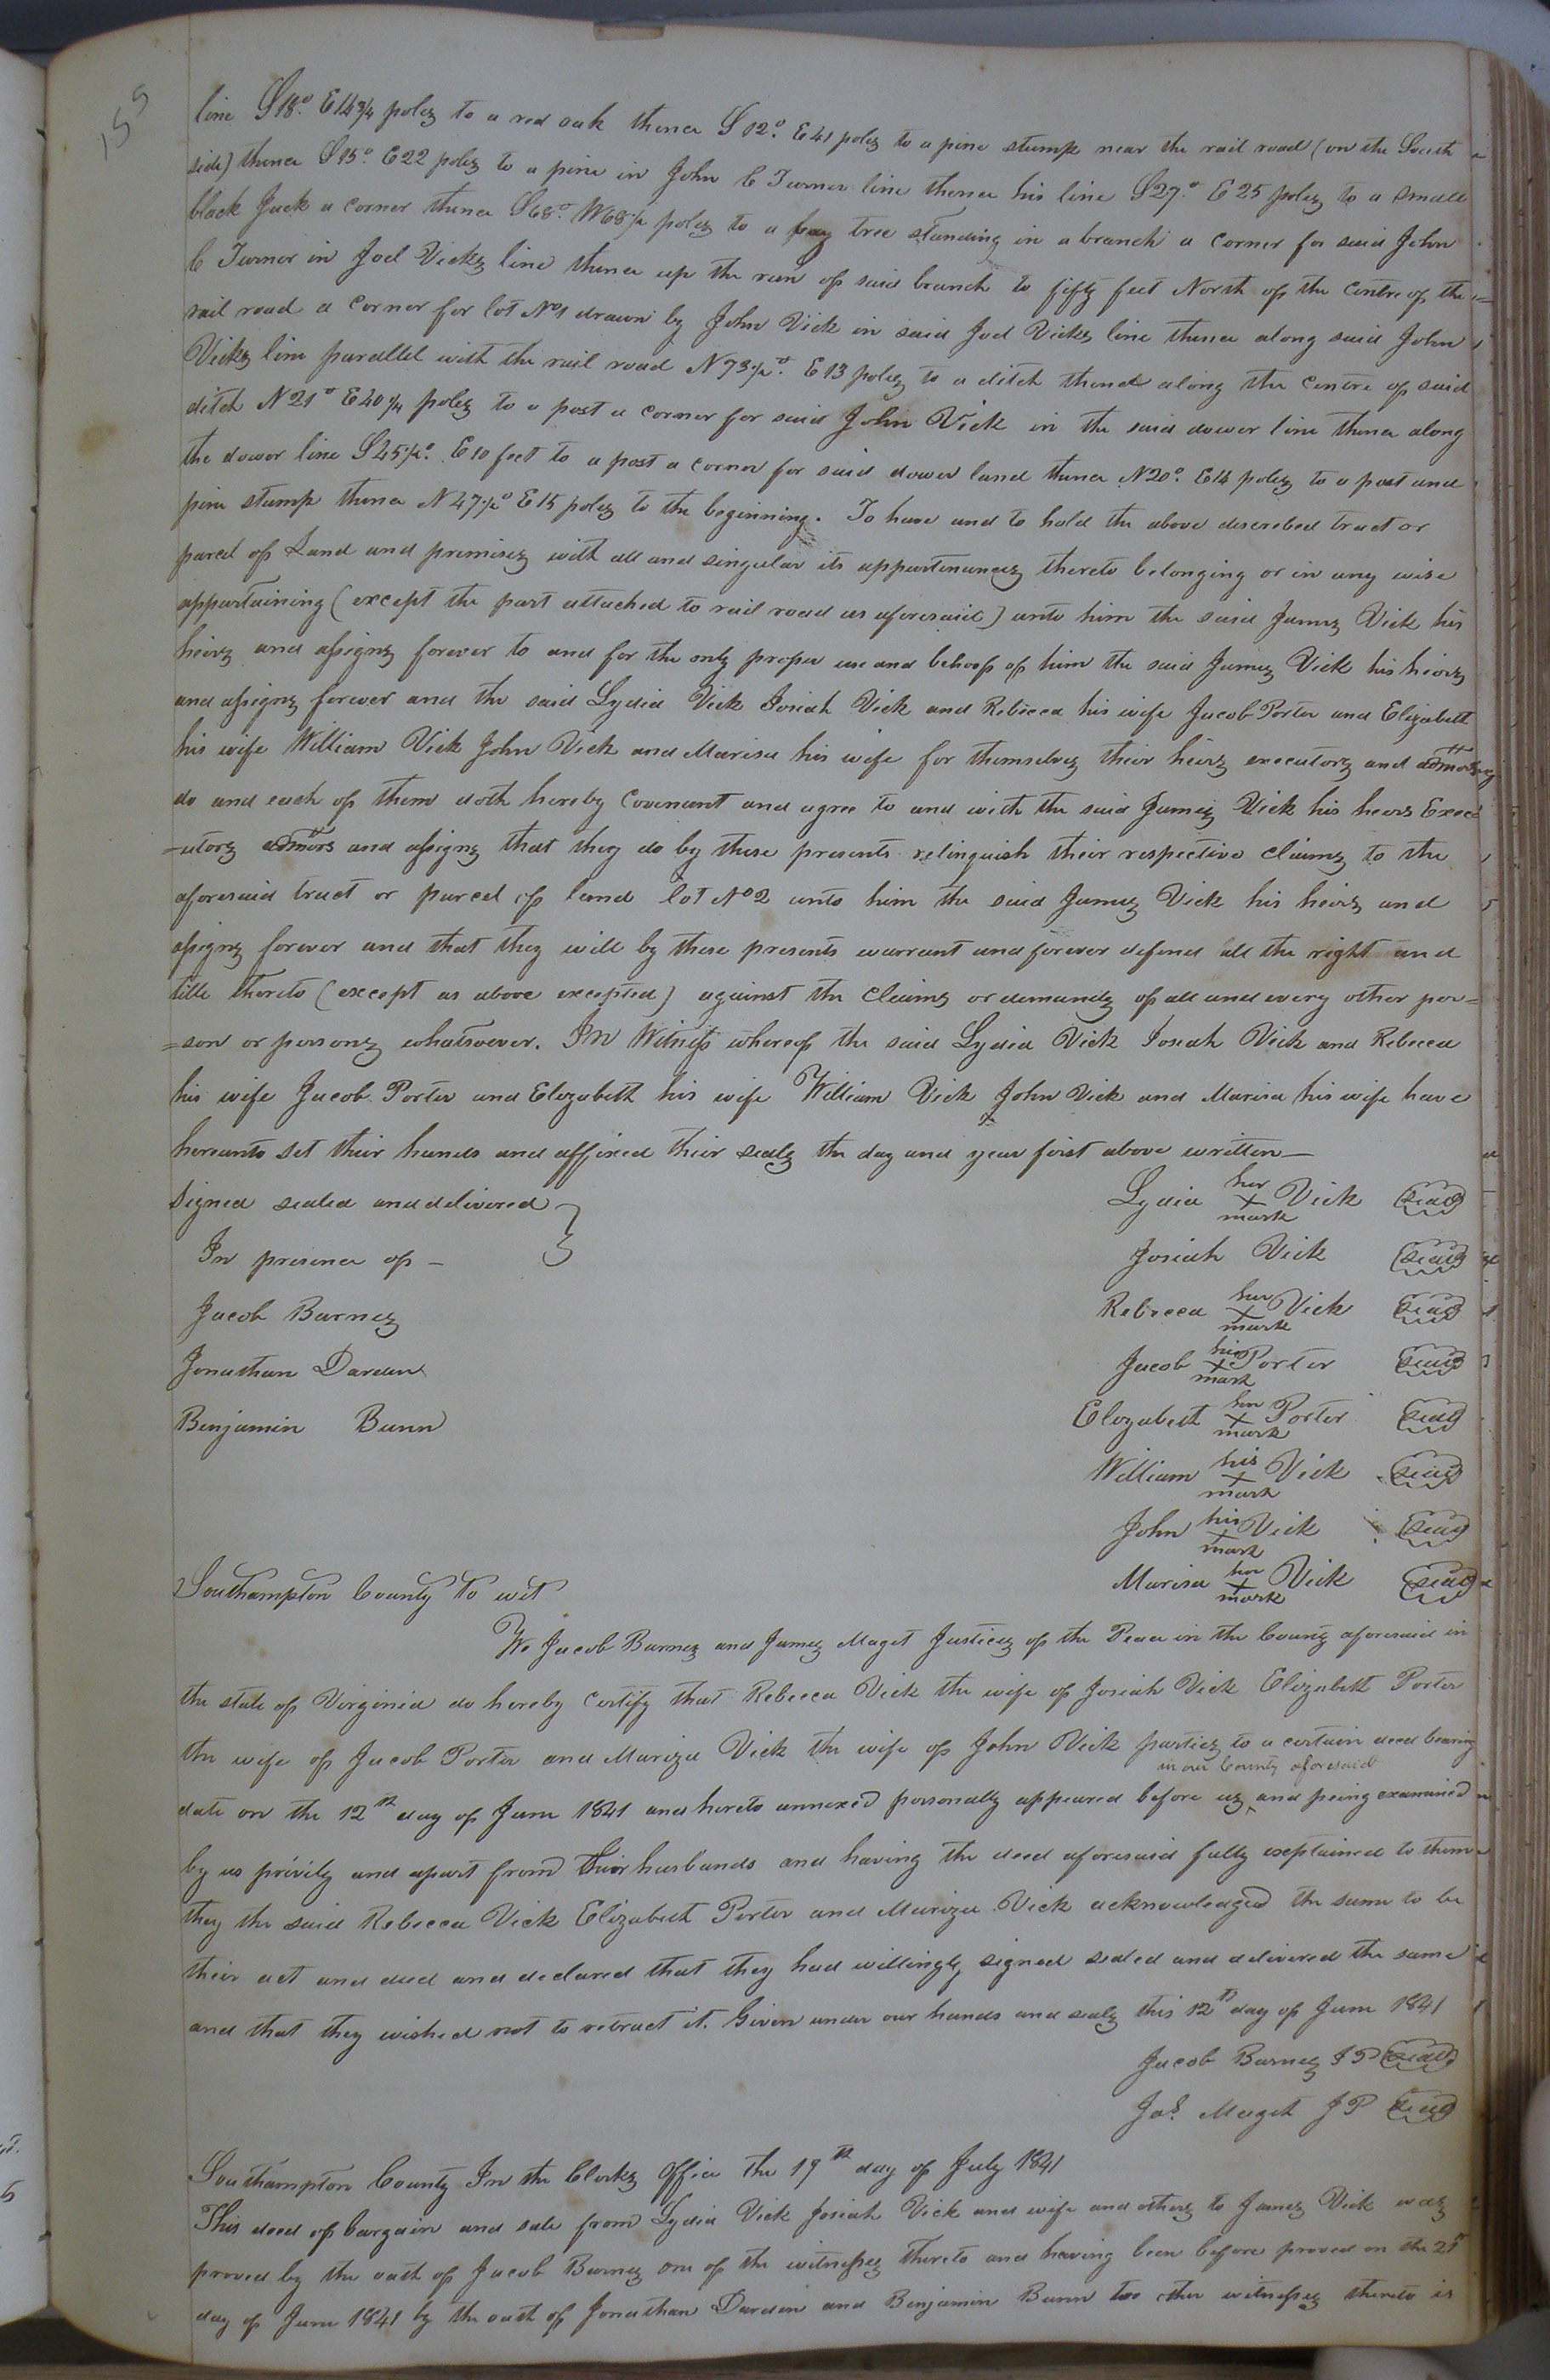 155
line S18°. E14¾ poles to a red oak thence S12°. E41 poles to a pine stump near the rail road (on the South
side) thence S15°. E22 poles to a pine in John C Turner line thence his line S27.° E25 poles to a small
black Jack a corner thence S68°. W68½ poles to a bay tree standing in a branch a corner for said John
C Turner in Joel Vicks line thence up the run of said branch to fifty feet North of the Centre of the
rail road a corner for lot No1 drawn by John Vick in said Joel Vicks line thence along said John
Vicks line parallel with the rail road N73½°. E13 poles to a ditch thence along the Centre of said
ditch N21° E40¼ poles to a post a corner for said John Vick in the said dower line thence along
the dower line S45½°. E10 feet to a post a corner for said dower land thence N20°. E14 poles to a post and
pine stump thence N47½° E15 poles to the beginning. To have and to hold the above described tract or
parcel of Land and premises with all and singular its appurtenances thereto belonging or in any wise
appurtaining (except the part attached to rail road as aforesaid) unto him the said James Vick his
heirs and assigns forever to and for the only proper use and behoof of him the said James Vick his heirs
and assigns forever and the said Lydia Vick Josiah Vick and Rebecca his wife Jacob Porter and Elizabeth
his wife William Vick John Vick and Marisa his wife for themselves their heirs executors and admors
do and each of them doth hereby Covenant and agree to and with the said James Vick his heirs Exec
-utors admors and assigns that they do by these presents relinquish their respective Claims to the
aforesaid tract or parcel of land lot No2 unto him the said James Vick his heirs and
assigns forever and that they will by these presents warrant and forever defend all the right and
title thereto (except as above excepted) against the Claims or demands of all and every other per=
=son or persons whatsoever. In Witness whereof the said Lydia Vick Josiah Vick and Rebecca
his wife Jacob Porter and Elizabeth his wife William Vick John Vick and Marisa his wife have
hereunto set their hands and affixed their seals the day and year first above written—
Signed sealed and delivered } Lydia her X mark Vick (Seal)
In presence of — Josiah Vick (Seal)
Jacob Barnes Rebecca her X mark Vick (Seal)
Jonathan Darden Jacob his X mark Porter (Seal)
Benjamin Bunn Elizabeth her X mark Porter (Seal)
William his X mark Vick (Seal)
John his X mark Vick (Seal)
Marisa her X mark Vick (Seal)
Southampton County to wit
We Jacob Barnes and James Maget Justices of the Peace in the County aforesaid in
the state of Virginia do hereby Certify that Rebecca Vick the wife of Josiah Vick Elizabeth Porter
the wife of Jacob Porter and Mariza Vick the wife of John Vick parties to a certain deed bearing
in our County aforesaid
date on the 12th day of June 1841 and hereto annexed personally appeared before us ^ and being examined
by us privily and apart from their husbands and having the deed aforesaid fully explained to them
they the said Rebecca Vick Elizabeth Porter and Mariza Vick acknowledged the same to be
their act and deed and declared that they had willingly signed sealed and delivered the same
and that they wished not to retract it. Given under our hands and seals this 12th day of June 1841
Jacob Barnes JP (Seal)
Jas. Maget JP (Seal)
Southampton County In the Clerks Office the 19th day of July 1841
This deed of bargain and sale from Lydia Vick Josiah Vick and wife and others to James Vick was
proved by the oath of Jacob Barnes one of the witnesses thereto and having been before proved on the 21st
day of June 1841 by the oath of Jonathan Darden and Benjamin Bunn two other witnesses thereto is